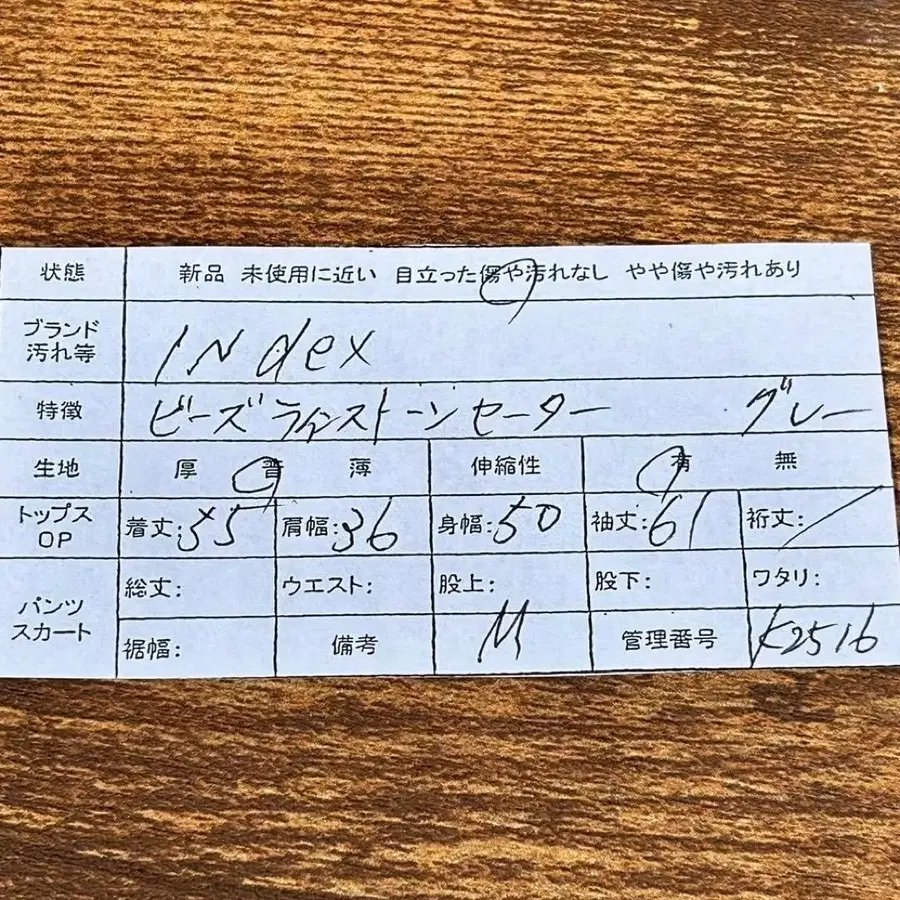 状態 新品 未使用に近い 目立った傷や汚れなし やや傷や汚れあり
ブランド
汚れ等 INdex
特徴 ビーズラインストーンセーター グレー
生地 厚 普 薄 伸縮性 有 無
トップス
OP 着丈:55 肩幅:36 身幅:50 袖丈:61 裄丈:/
パンツ
スカート 総丈: ウエスト: 股上: 股下: ワタリ:
裾幅: 備考 M 管理番号 K2516